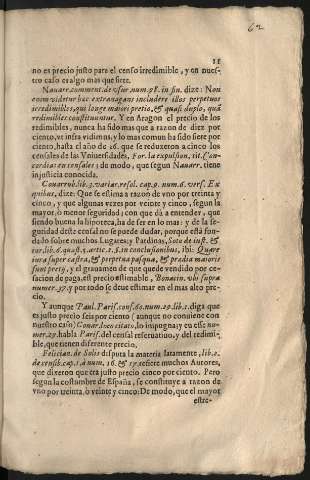 62
11
no es precio justo para el censo irredimible, y en nues-
tro caso era algo mas que siete.
Nauarr. comment. de vsur. num. 98. in fin. dize: Non
enim videtur hac extrauagans includere illos perpetuos
irredimibiles, qui longe maiori pretio, & quasi duplo, quā
redimibiles constituuntur. Y en Aragon el precio de los
redimibles, nunca ha sido mas que a razon de diez por
ciento, ve infra vidimus, y lo mas comun ha sido siete por
ciento, hasta el año de 26. que se reduxeron a cinco los
censales de las Vniuersidades, For. la expulsion, tit. Con-
cordias en censales: de modo, que segun Nauarr. tienen
injusticia conocida.
Couarrub. lib. 3. variar. resol. cap. 9. num. 6. vers. Ex
quibus, dize: Que se estima a razon de vno por treinta y
cinco, y que algunas vezes por veinte y cinco, segun la
mayor, ò menor seguridad; con que dà a entender, que
siendo buena la hipoteca, ha de ser en lo mas: y de la se-
guridad deste censal no se puede dudar, porque està fun-
dado sobre muchos Lugares, y Pardinas, Soto de iust. &
iur. lib. 6. quæst. 5. artic. 2. §. in conclusionibus, ibi: Quare
iura super castra, & perpetua pasqua, & prædia maioris
sunt pretij, y el grauamen de que quede vendido por ce-
sacion de paga, est precio æstimabile, Bonacin. vbi supra
numer. 37. y por todo se deue estimar en el mas alto pre-
cio.
Y aunque Paul. Paris. cons. 60. num. 29. lib. 2. diga que
es justo precio seis por ciento (aunque no conuiene con
nuestro caso) Couar. loco citato, lo impugna; y en esse nu-
mer. 29. habla Paris. del censal reseruatiuo, y del redimi-
ble, que tienen diferente precio.
Felician. de Solis disputa la materia latamente, lib. 2.
de censib. cap. 1. à num. 16. & 17. refiere muchos Autores,
que dixeron que era justo precio cinco por ciento. Pero
segun la costumbre de España, se constituye a razon de
vno por treinta, ò veinte y cinco: De modo, que el mayor
estre-